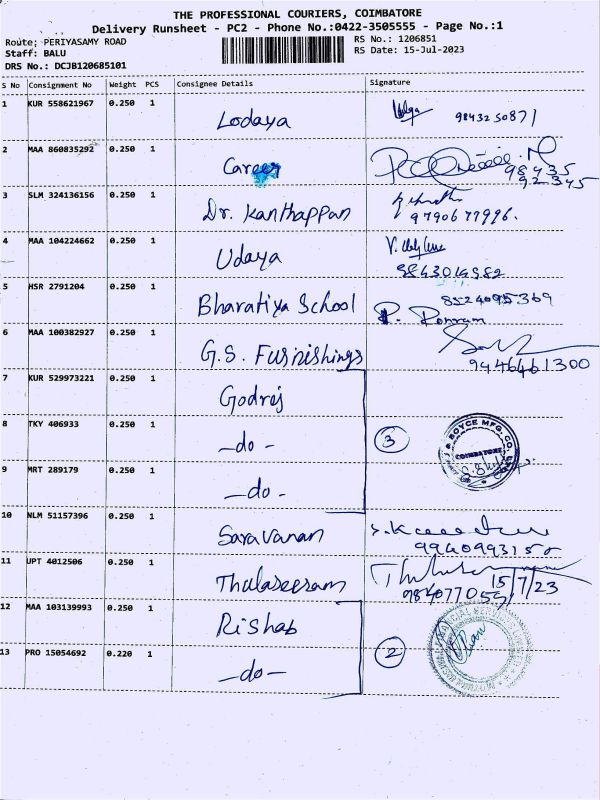 THE PROFESSIONAL COURIERS, COIMBATORE
Delivery Runsheet - PC2 - Phone No.:0422-3505555 - Page No.:1
Route: PERIYASAMY ROAD RS No.: 1206851
Staff: BALU RS Date: 15-Jul-2023
DRS No.: DCJB120685101
S No Consignment No Weight PCS Consignee Details Signature
1 KUR 558621967 0.250 1 Lodaya 9843250871
2 MAA 860835292 0.250 1 Career 98435
92345
3 SLM 324136156 0.250 1 Dr. Kanthappan
9790677996.
4 MAA 104224662 0.250 1 Udaya
5 HSR 2791204 0.250 1 Bharatiya School 8524095369
6 MAA 100382927 0.250 1 G.S. Furnishings
9446461300
7 KUR 529973221 0.250 1 Godrej
8 TKY 406933 0.250 1 -do- 3
BOYCE MFG. CO. COIMBATORE
9 MRT 289179 0.250 1 -do-
10 NLM 51157396 0.250 1 Saravanan
11 UPT 4012506 0.250 1 Thulaseeram 15/7/23
12 MAA 103139993 0.250 1 Rishab
13 PRO 15054692 0.220 1 -do- 2